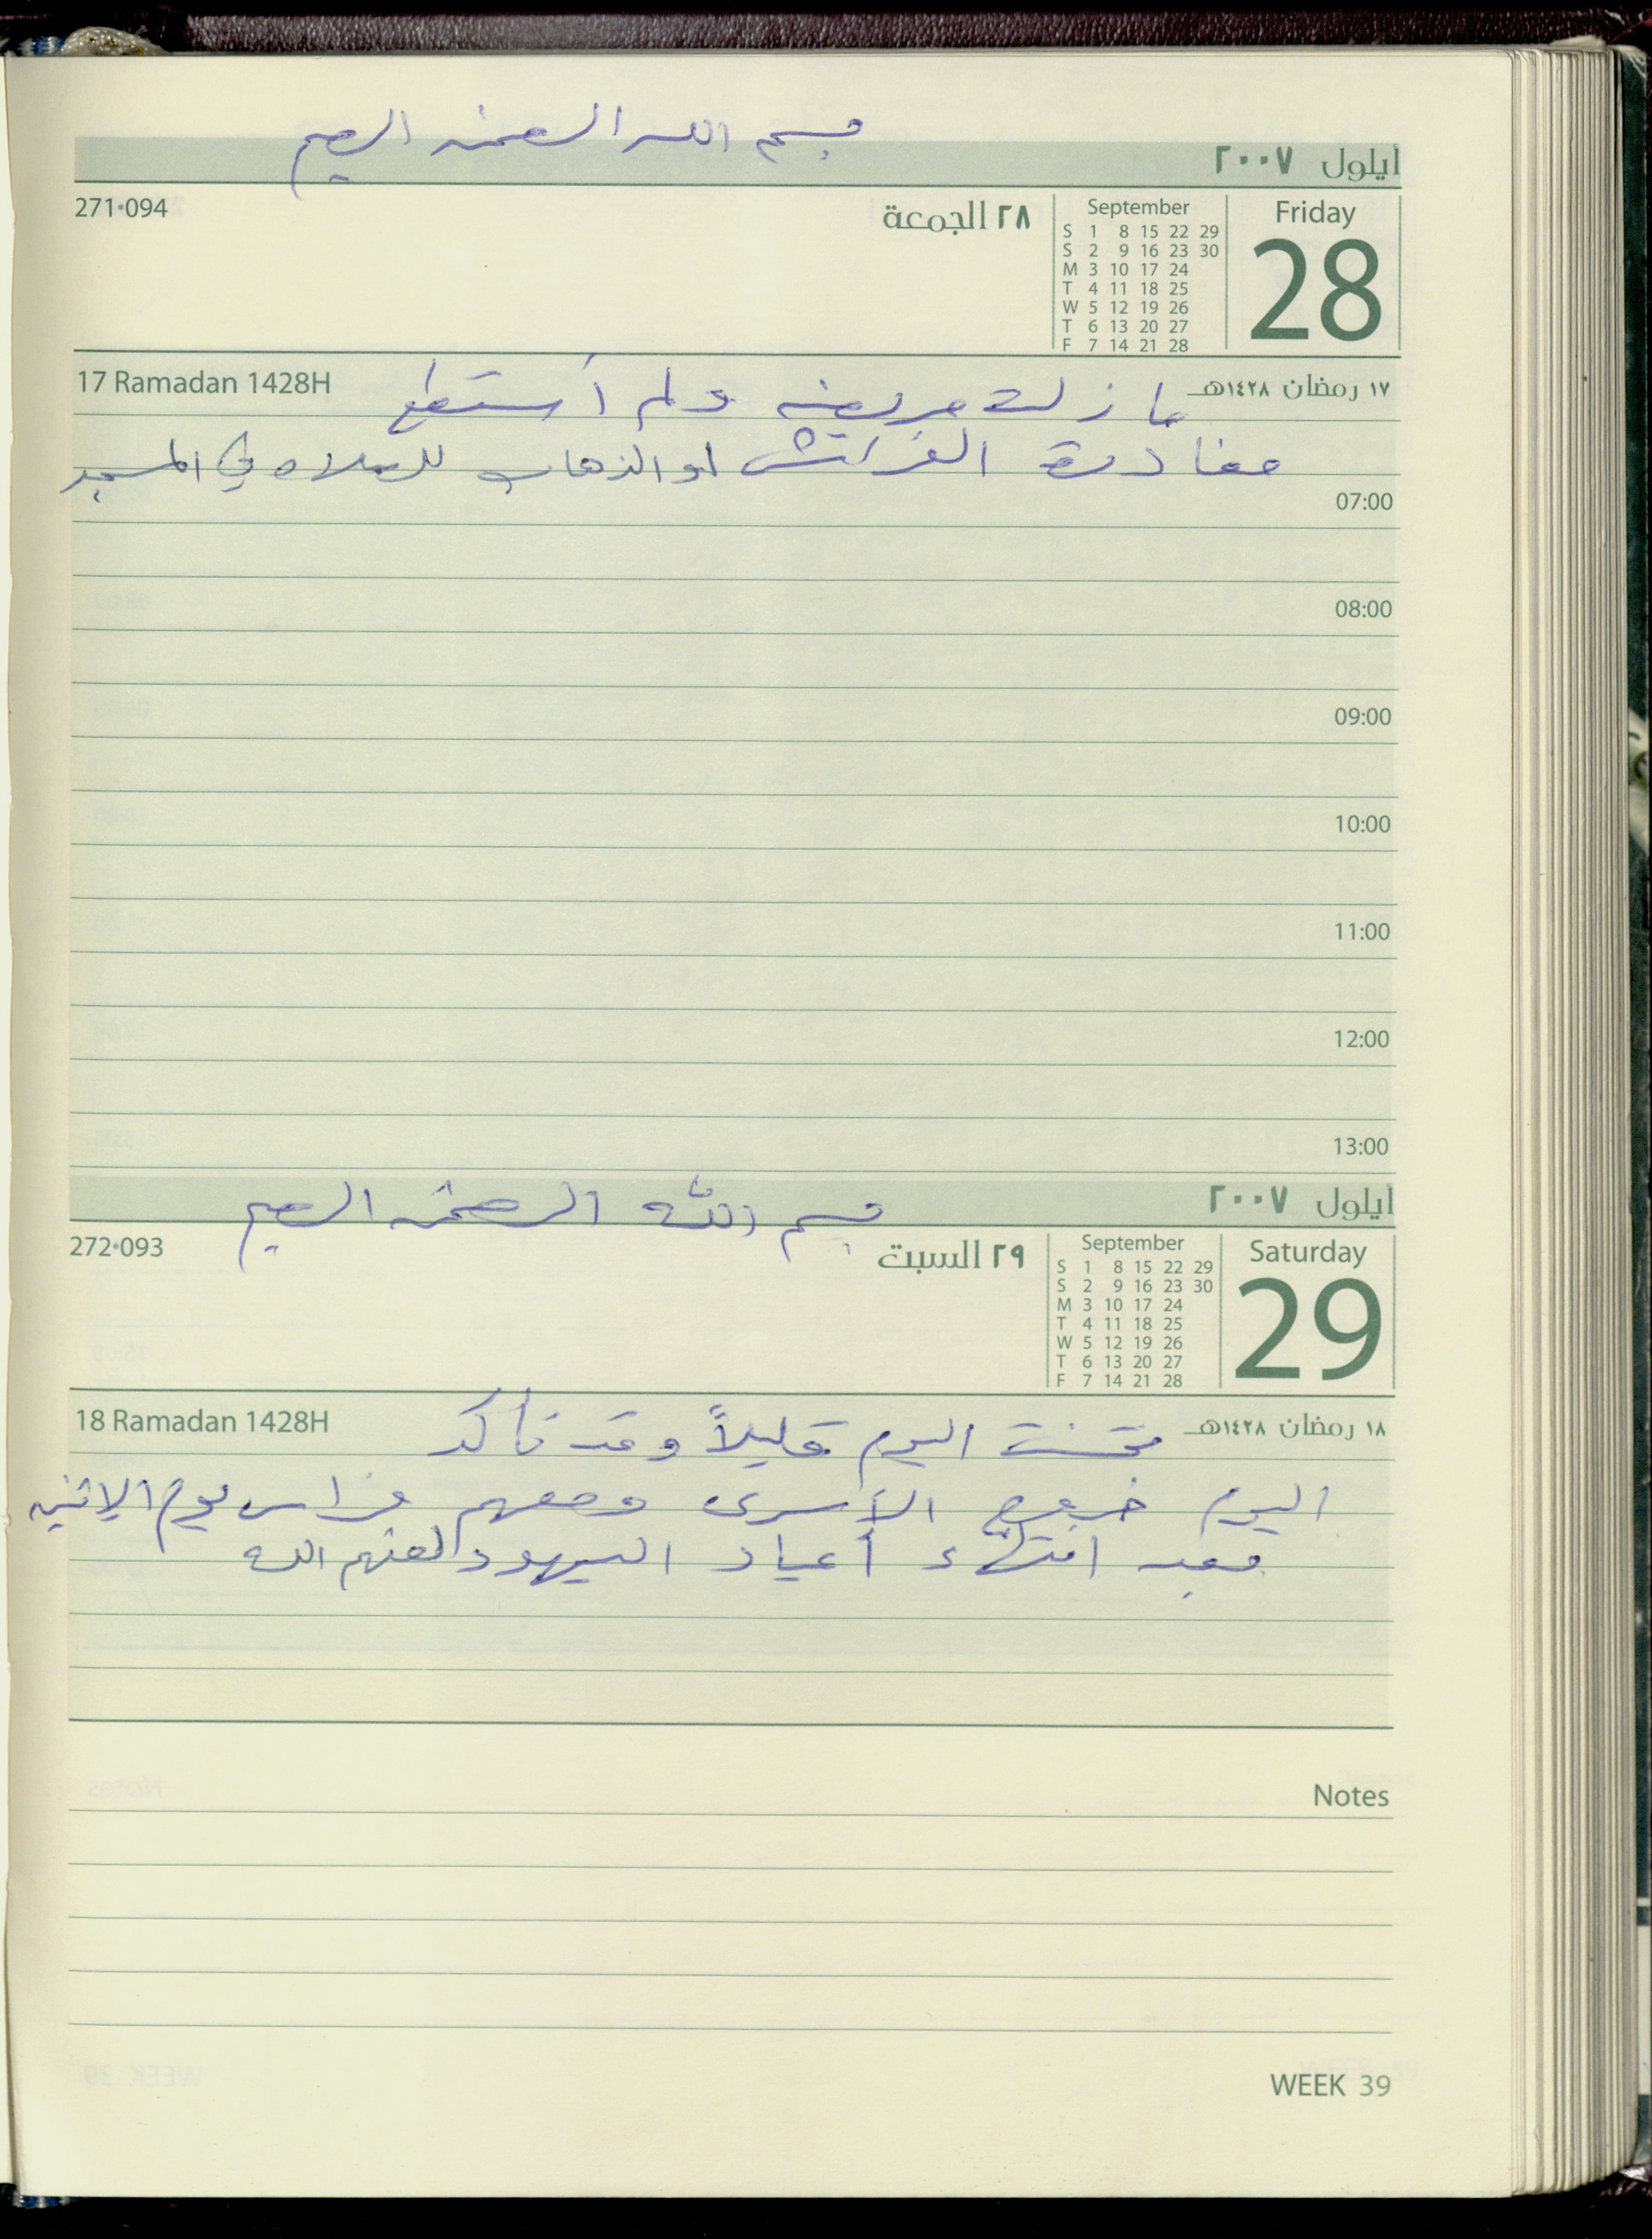 بسم الله الرحمن الرحيم
أيلول ٢٠٠٧
271·094
٢٨ الجمعة
September
S 1 8 15 22 29
S 2 9 16 23 30
M 3 10 17 24
T 4 11 18 25
W 5 12 19 26
T 6 13 20 27
F 7 14 21 28
Friday
28
17 Ramadan 1428H
١٧ رمضان ١٤٢٨هـ
ما زلت مريضه ولم أستطع
مغادرة الفراش او الذهاب للصلاه في المسجد
07:00
08:00
09:00
10:00
11:00
12:00
13:00
بسم الله الرحمن الرحيم
أيلول ٢٠٠٧
272·093
٢٩ السبت
September
S 1 8 15 22 29
S 2 9 16 23 30
M 3 10 17 24
T 4 11 18 25
W 5 12 19 26
T 6 13 20 27
F 7 14 21 28
Saturday
29
18 Ramadan 1428H
١٨ رمضان ١٤٢٨هـ
تحسنت اليوم قليلاً وقد تأكد
اليوم خروج الأسرى ومعهم فراس يوم الاثنين
بعد انتهاء أعياد اليهود لعنهم الله
Notes
WEEK 39